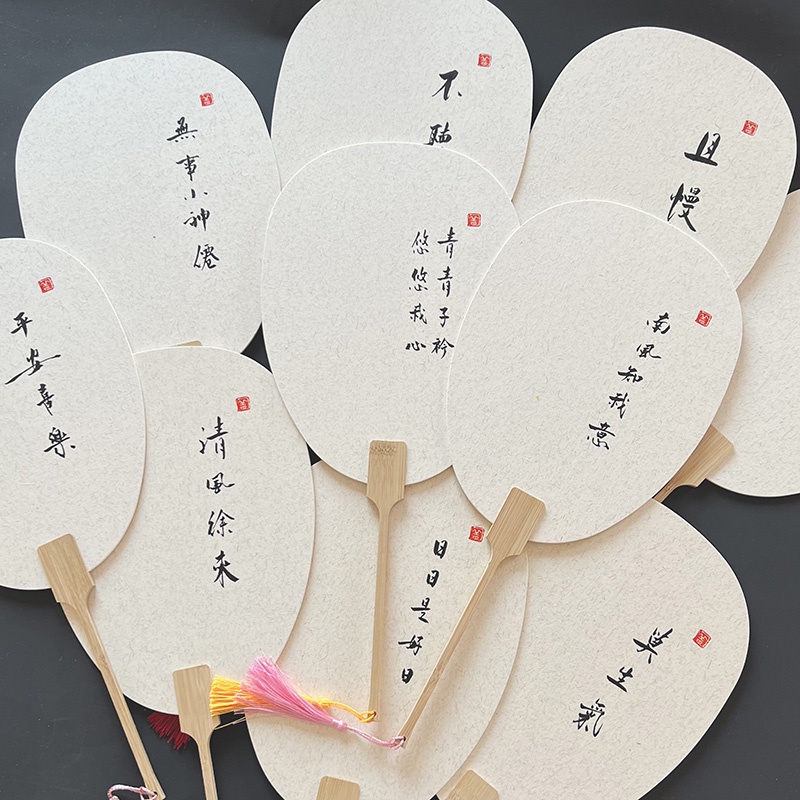 無事小神僊
不聽
且慢
青青子衿
悠悠我心
南風知我意
平安喜樂
清風徐來
日日是好日
莫生氣